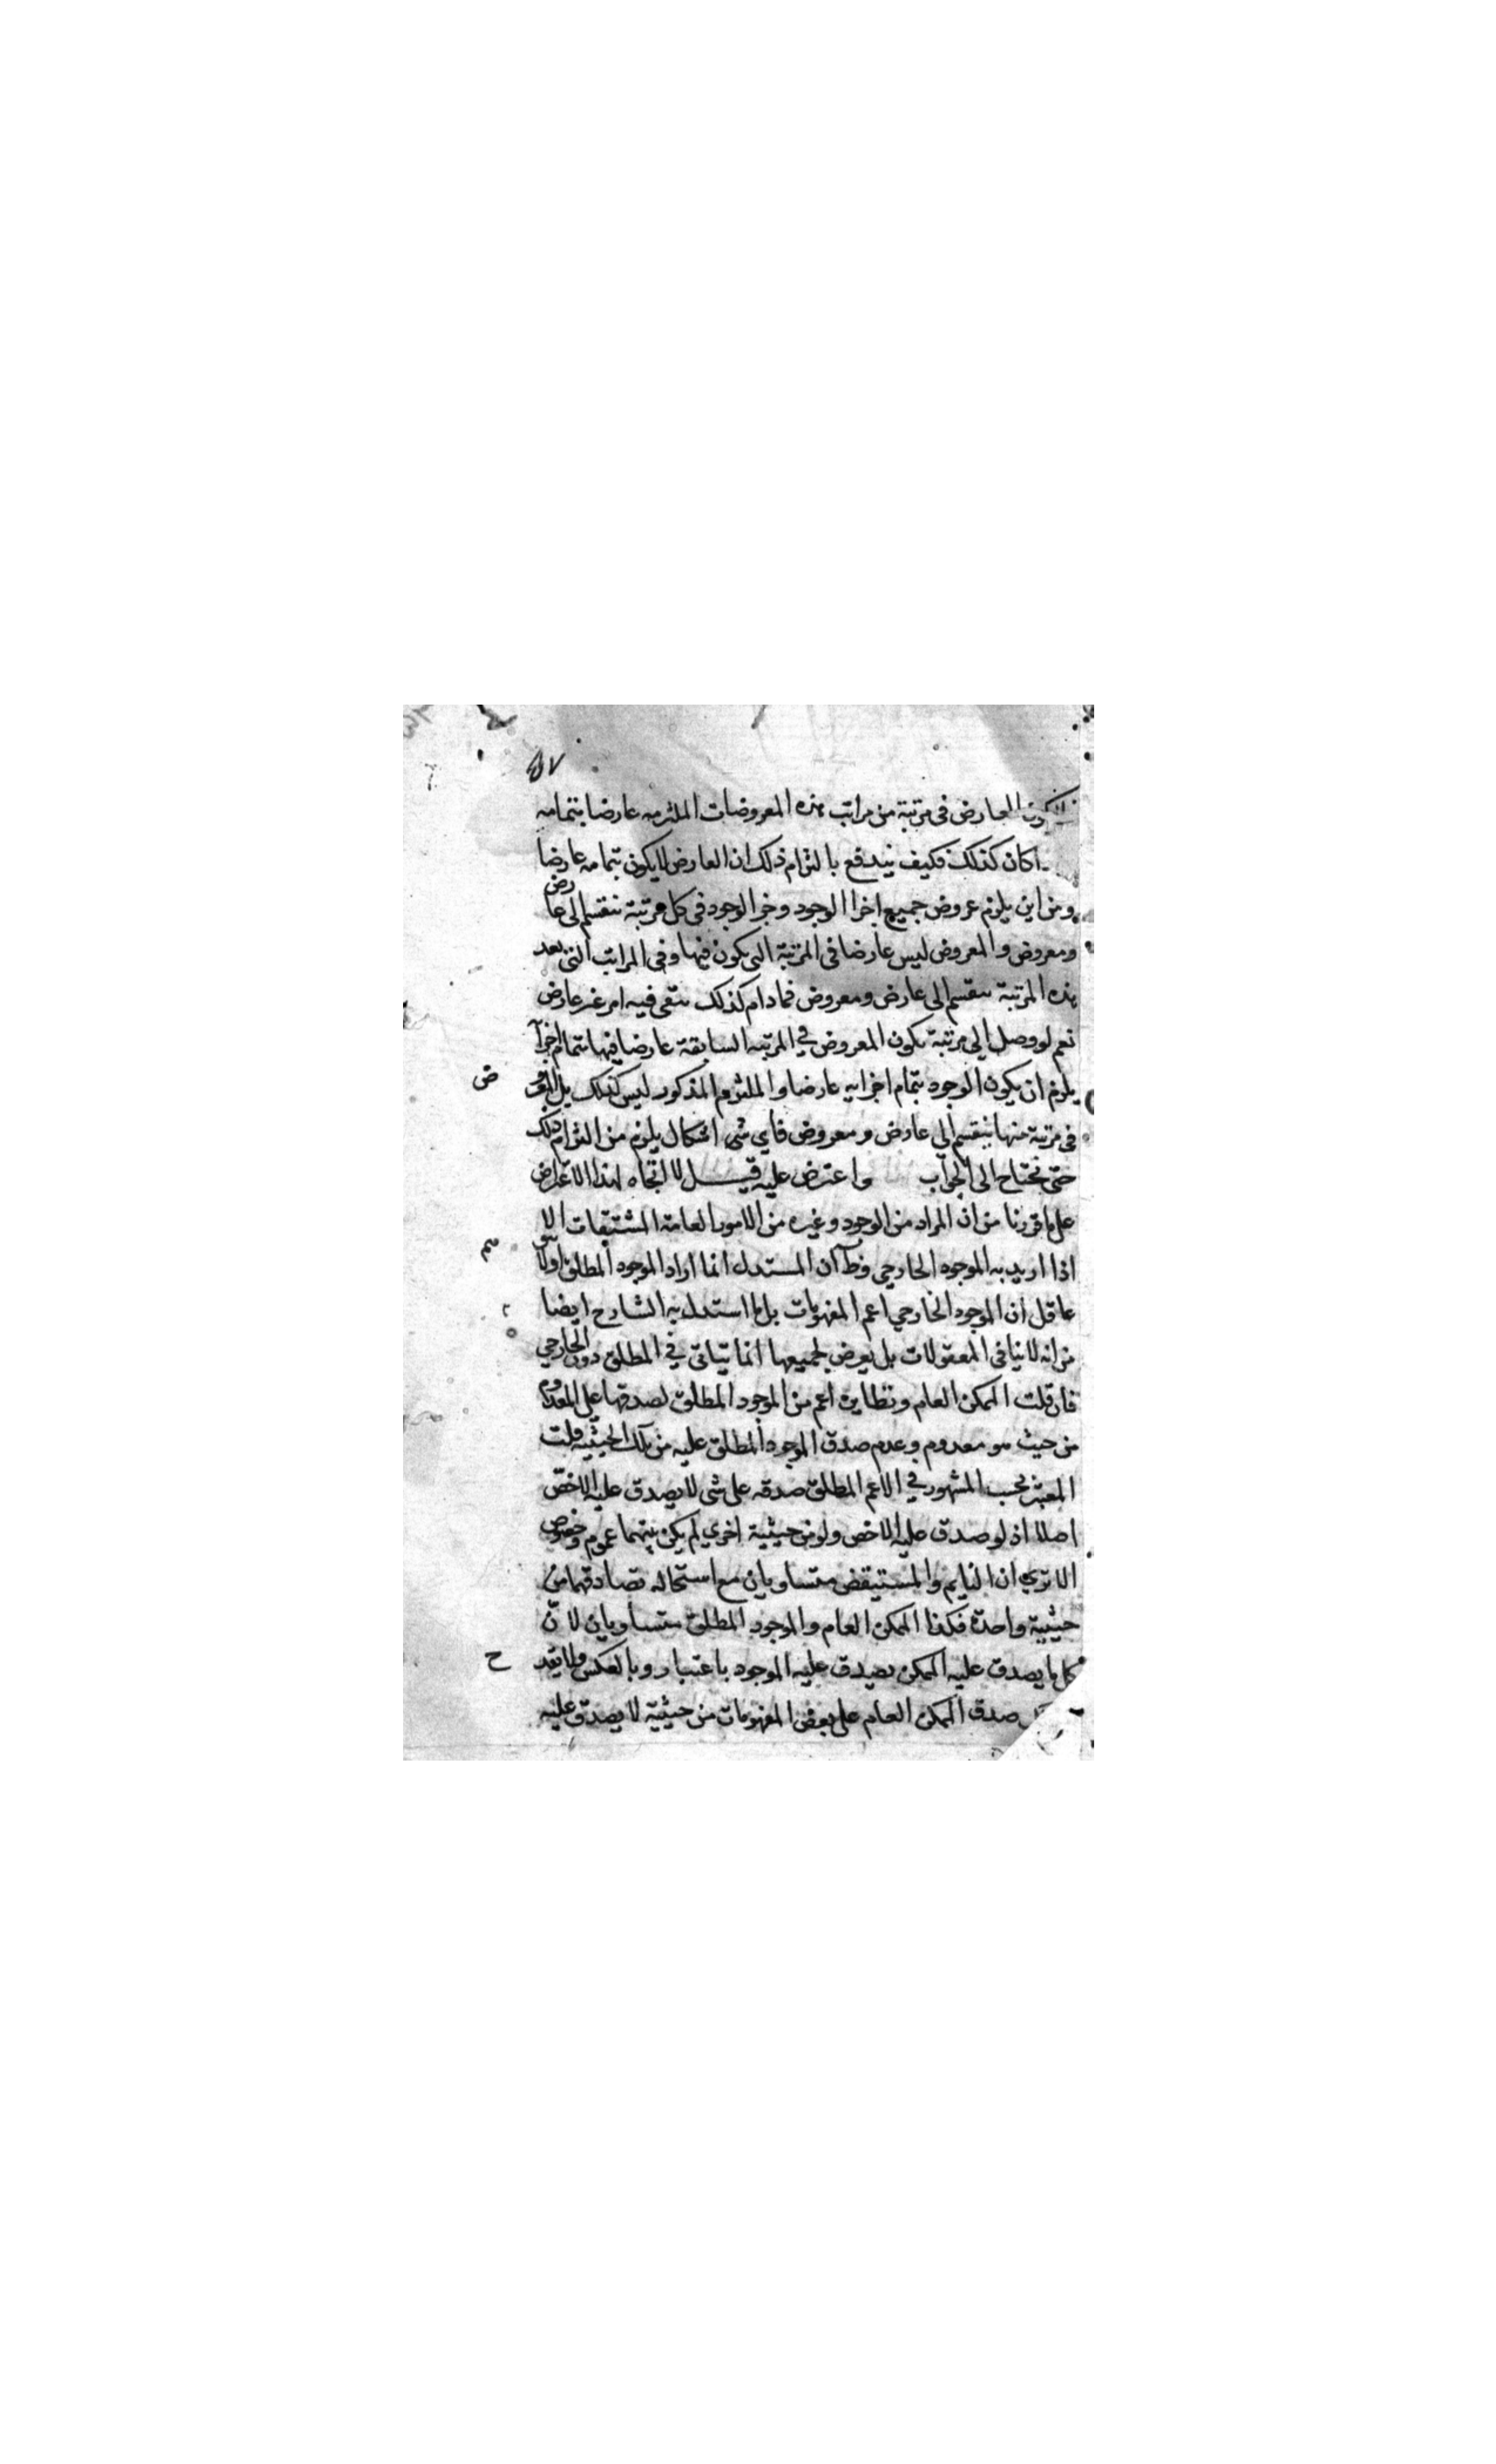 ٥٧
العارض فى مرتبة من مراتب هذه المعروضات الملتزمه عارضا بتمامه
كان كذلك فكيف يندفع بالتزام ذلك ان العارض لا يكون بتمامه عارضا
ومن اين يلزم عروض جميع اجزا الوجود وجز الوجود فى كل مرتبة ينقسم الى عارض
ومعروض والمعروض ليس عارضا فى المرتبة التى يكون فيها وفى المراتب التى بعد
هذه المرتبة ينقسم الى عارض ومعروض فمادام كذلك يبقى فيه امر غير عارض
نعم لو وصل الى مرتبة يكون المعروض في المرتبه السابقة عارضا فيها بتمام اجزآ
يلزم ان يكون الوجود بتمام اجزايه عارضا والملتزم المذكور ليس كذلك بل
ض
فى مرتبة منها ينقسم الي عارض ومعروض فاي شى اشكال يلزم من التزام ذلك
حتى يحتاج الى الجواب واعترض عليه قيل لا اتجاه لهذا الاعتراض
على ما قررنا من ان المراد من الوجود وغيره من الامور العامة المشتقات الا
اذا اريد به الموجود الخارجي وظ آن المستدل انما اراد الموجود المطلق اولا
عاقل ان الموجود الخارجي اعم المفهومات بل ما استدل به الشارح ايضا
من انه لا ينافى المعقولات بل يعرض لجميعها انما يتاتى في المطلق دون الخارجي
فان قلت الممكن العام ونظايره اعم من الموجود المطلق لصدقها على المعدوم
من حيث هو معدوم وعدم صدق الموجود المطلق عليه من تلك الحيثيه قلت
المعتبر بحسب المشهور في الاعم المطلق صدقه على شى لا يصدق عليه الاخص
اصلا اذ لو صدق عليه الاخص ولو من حيثية اخري لم يكن بينهما عموم وخصوص
الا تري ان النايم والمستيقض متساويان مع استحاله تصادقهما من
حيثية واحدة فكذا الممكن العام والموجود المطلق متساويان لان
كل ما يصدق عليه الممكن يصدق عليه الموجود باعتبار وبالعكس ولا يقد
ح
صدق الممكن العام على بعض المفهومات من حيثية لا يصدق عليه